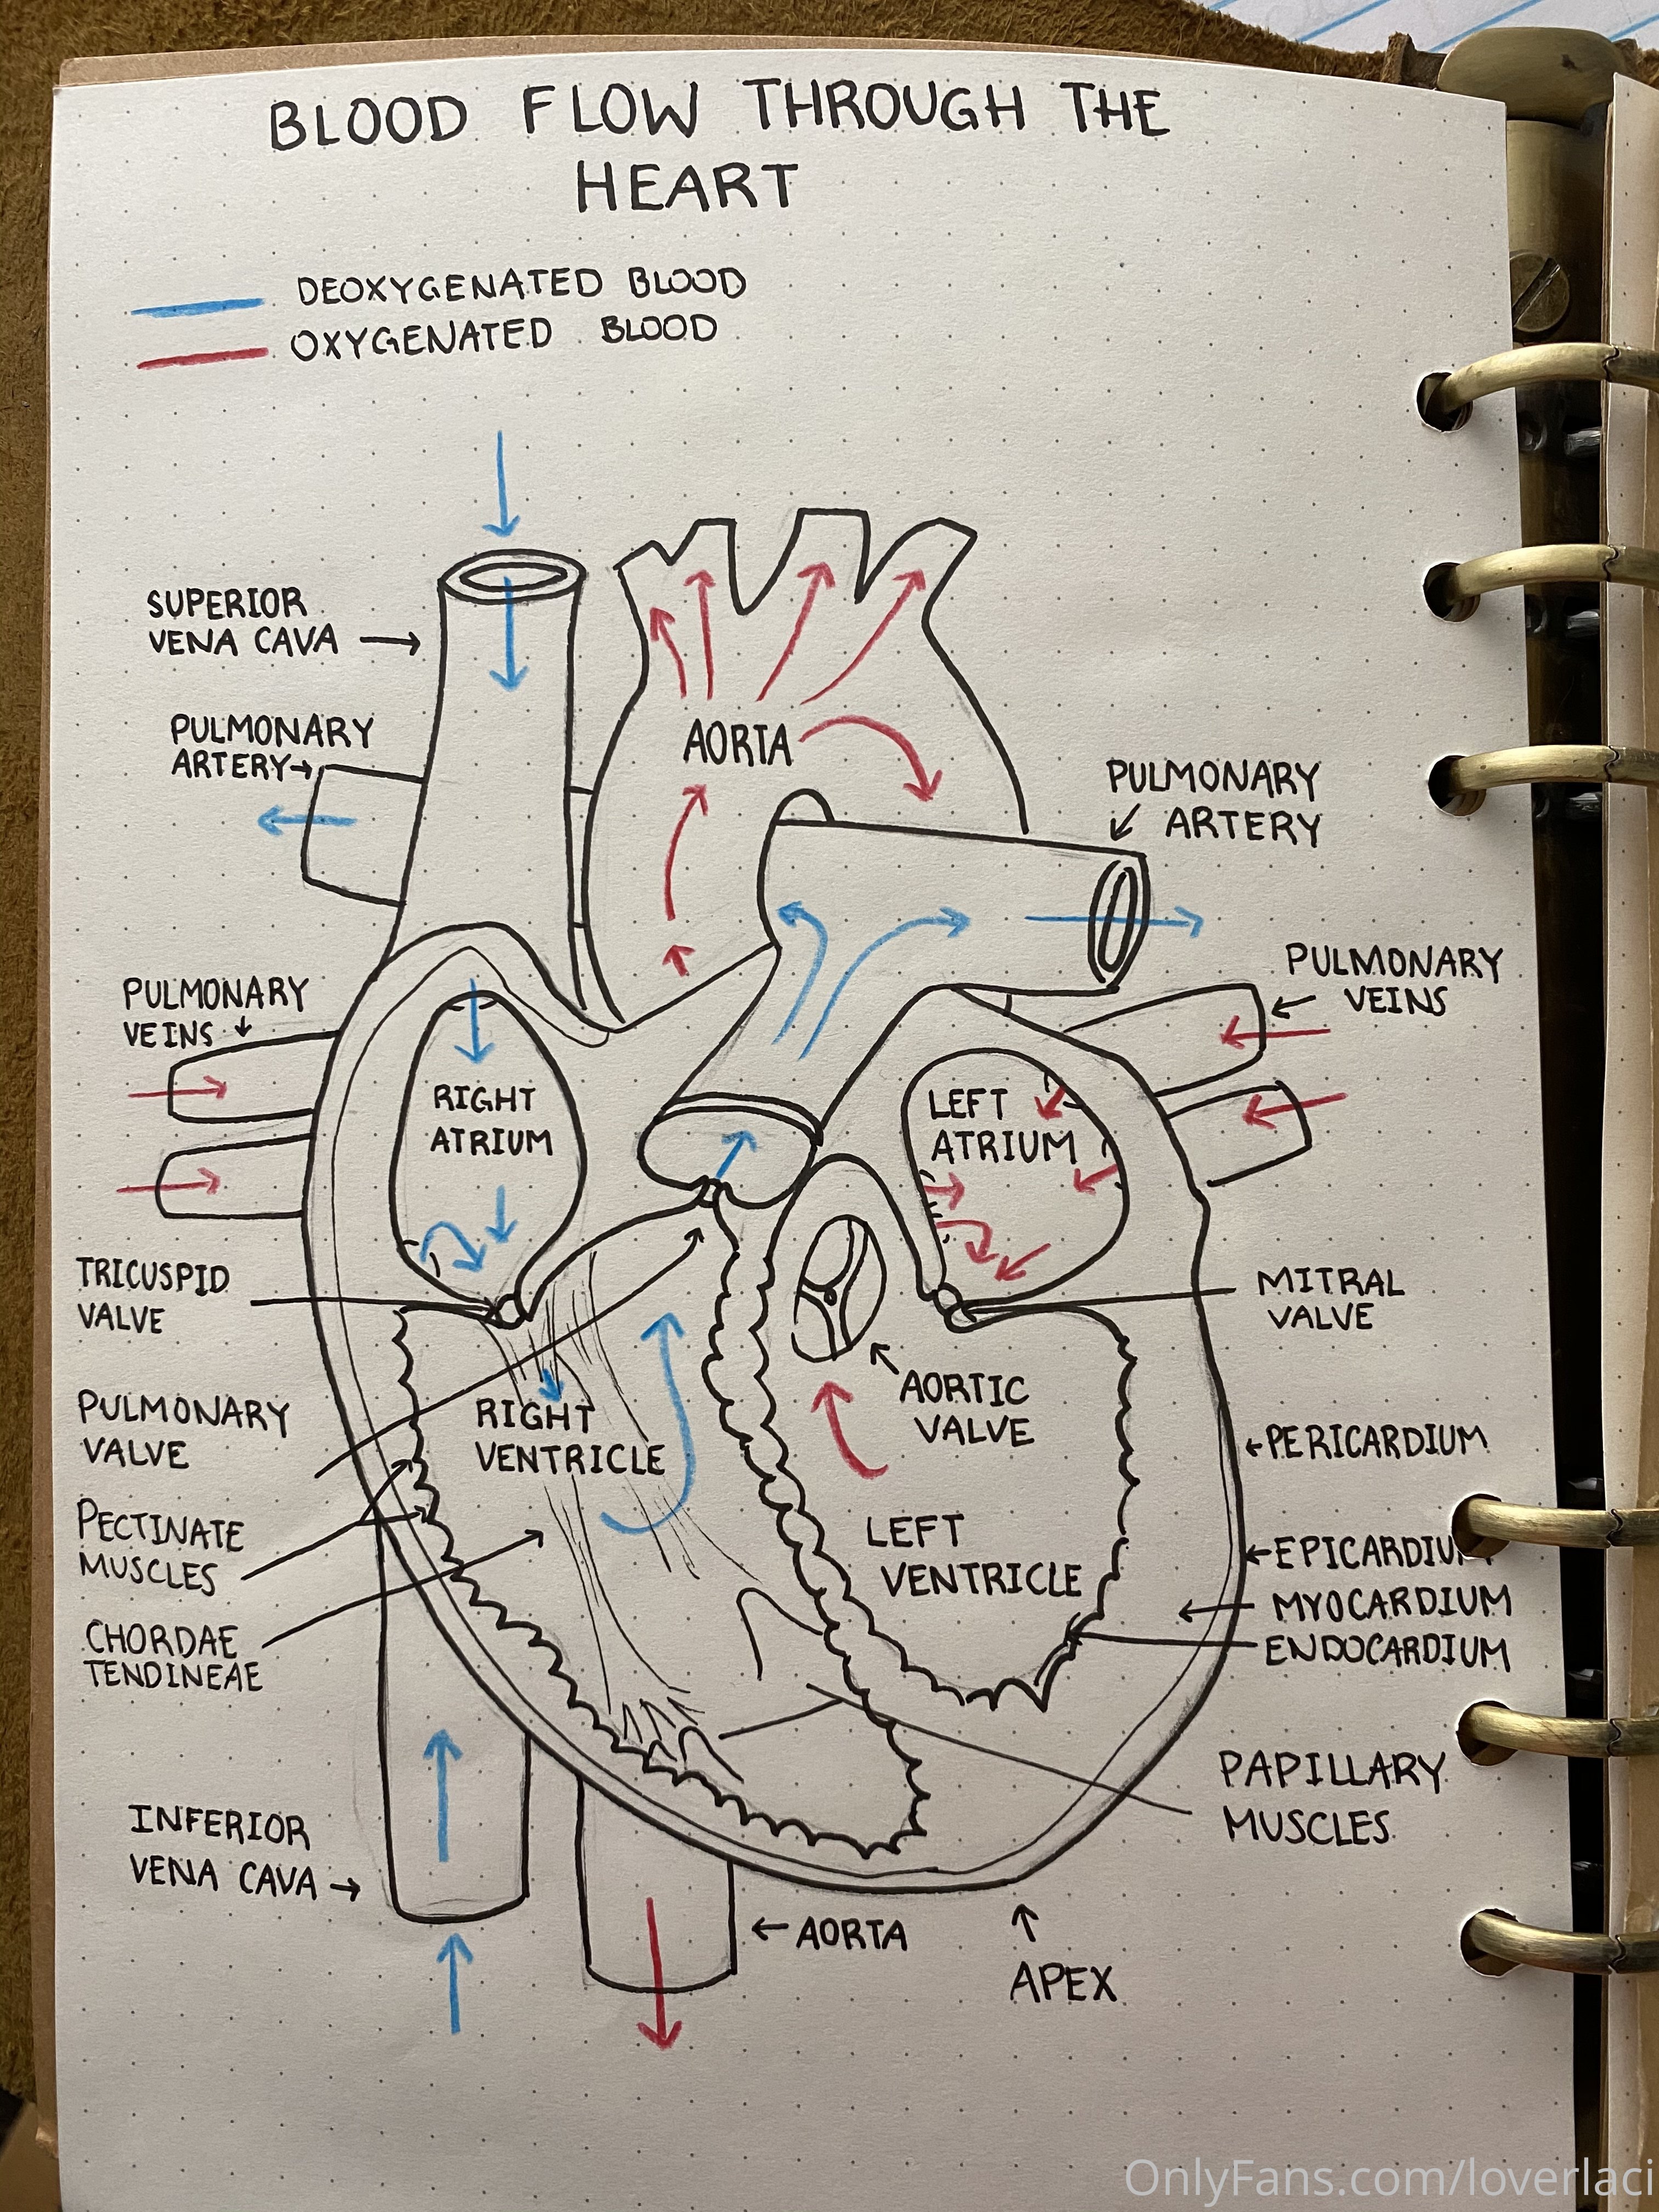 BLOOD FLOW THROUGH THE
HEART
DEOXYGENATED BLOOD
OXYGENATED BLOOD
SUPERIOR
VENA CAVA
PULMONARY
ARTERY
AORTA
PULMONARY
ARTERY
PULMONARY
VEINS
PULMONARY
VEINS
RIGHT
ATRIUM
LEFT
ATRIUM
TRICUSPID
VALVE
MITRAL
VALVE
PULMONARY
VALVE
RIGHT
VENTRICLE
AORTIC
VALVE
PERICARDIUM
PECTINATE
MUSCLES
LEFT
VENTRICLE
EPICARDIUM
MYOCARDIUM
ENDOCARDIUM
CHORDAE
TENDINEAE
PAPILLARY
MUSCLES
INFERIOR
VENA CAVA
AORTA
APEX
OnlyFans.com/loverlaci